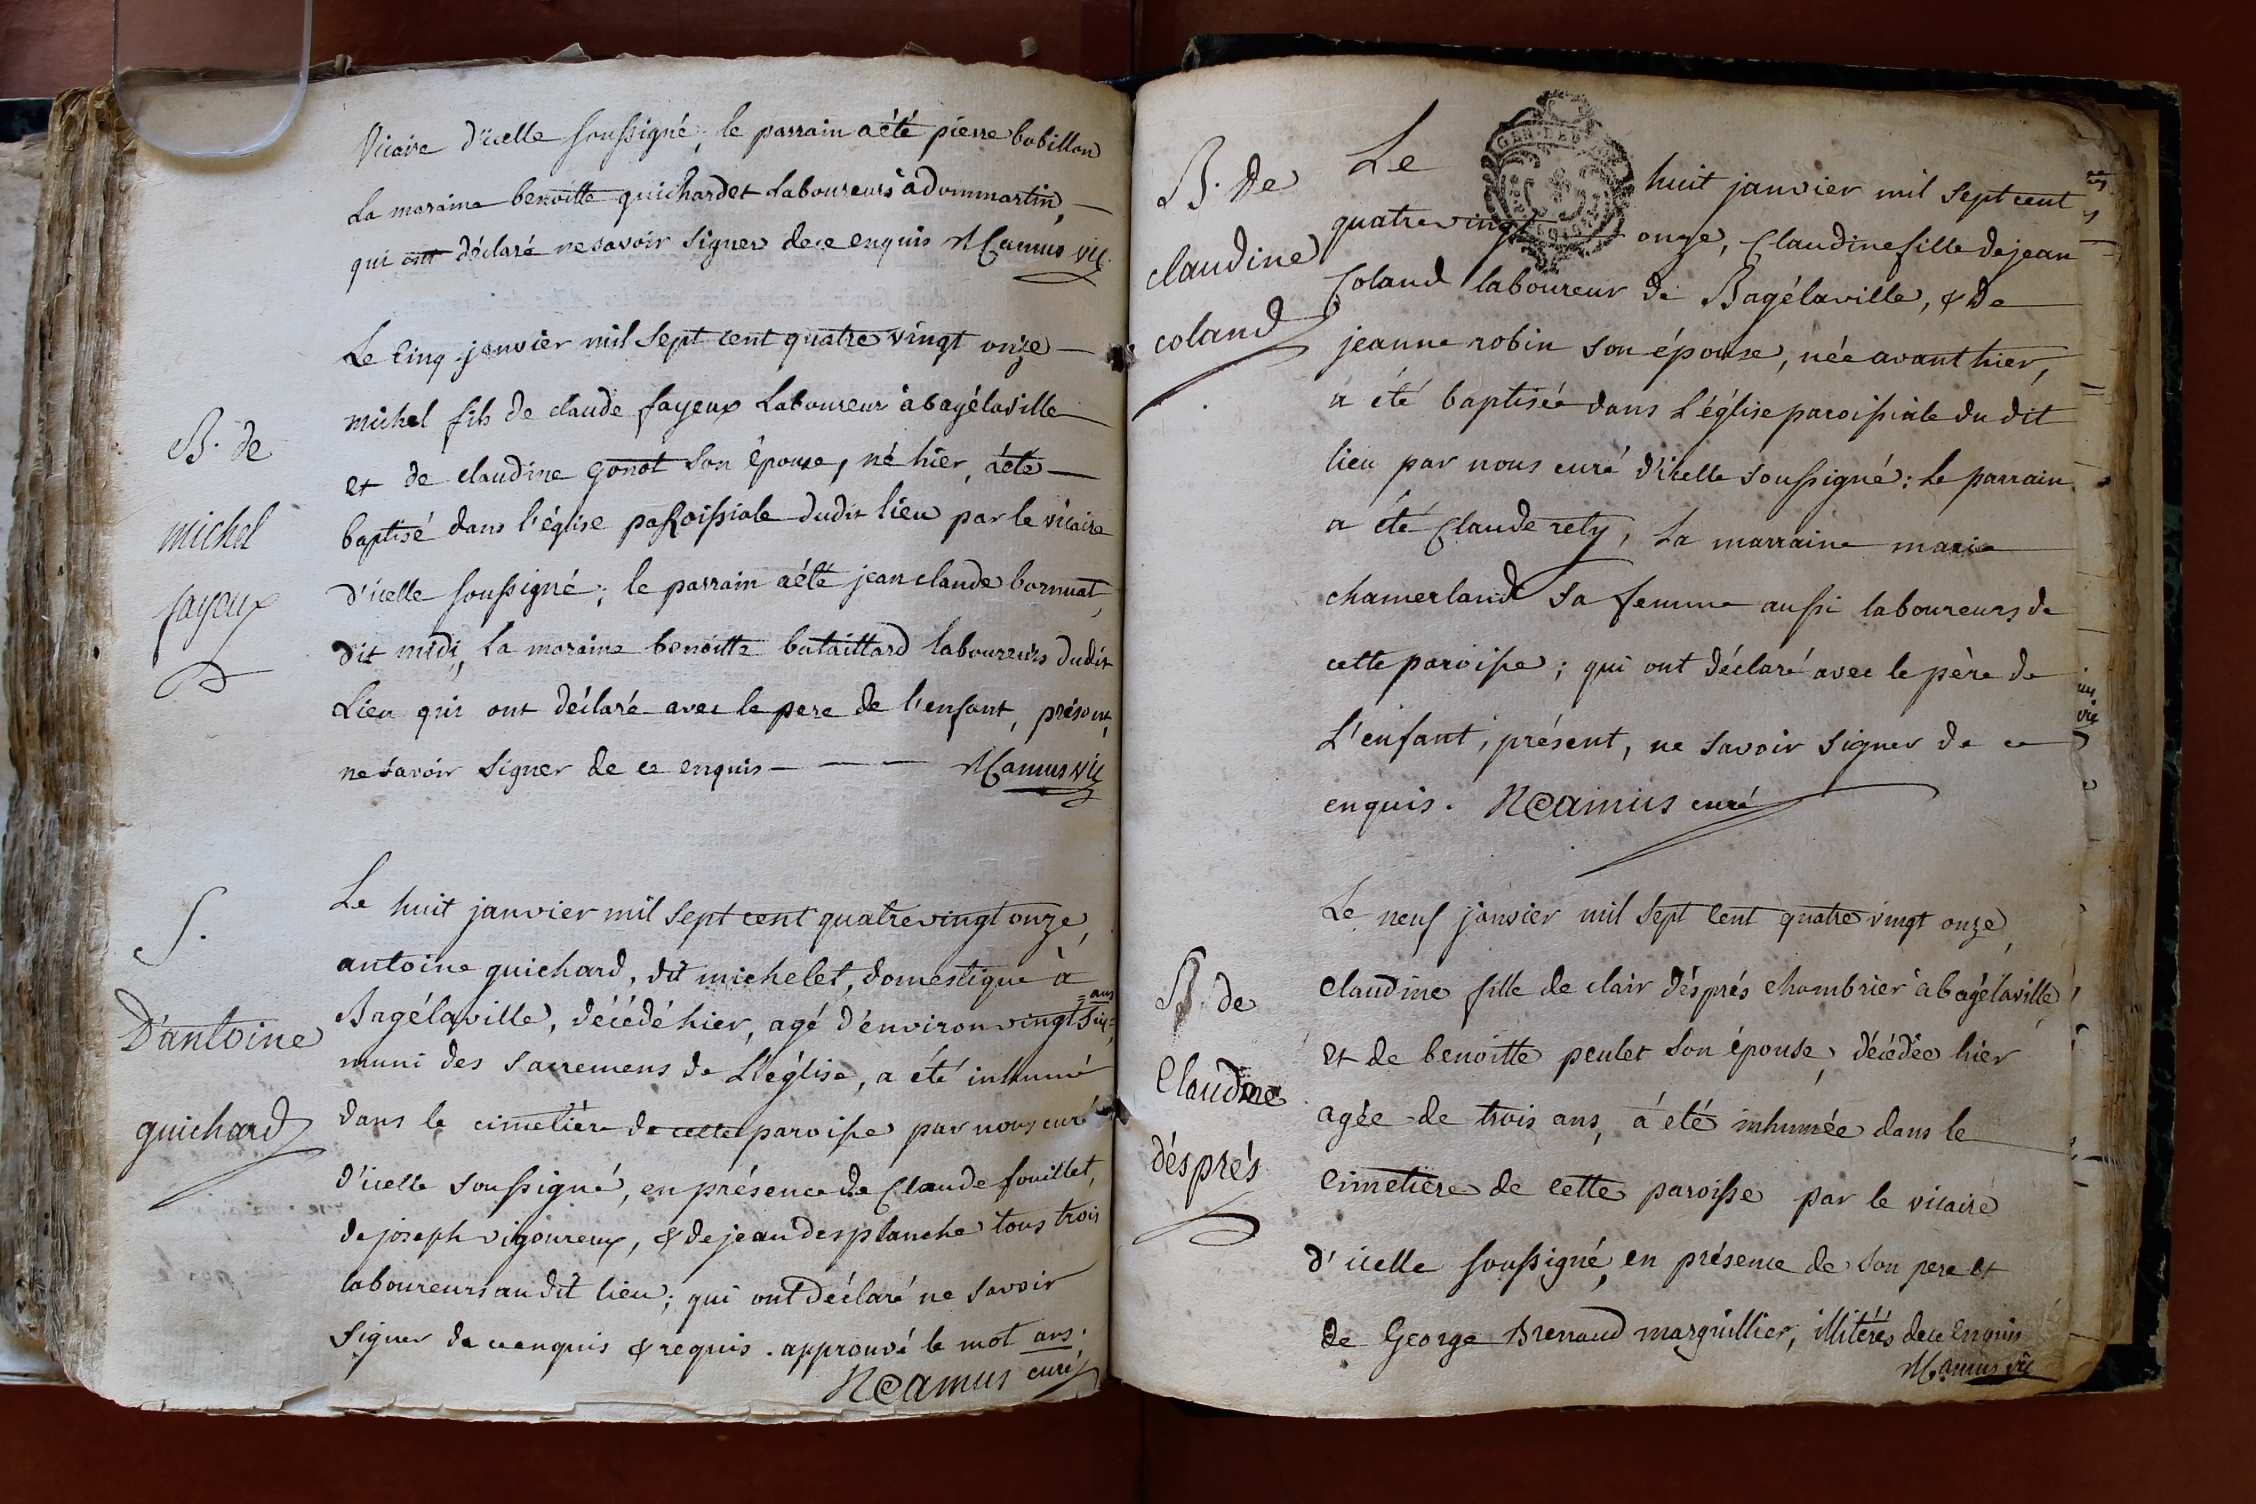 Vicaire d'icelle soussigné; le parrain a été pierre bobillon
La maraine benoitte guichardet Laboureurs à dommartin,
qui ont déclaré ne savoir signer de ce enquis N Camus vic.
B. de
michel
fayeux
Le Cinq janvier mil sept cent quatre vingt onze
michel fils de claude fayeux Laboureur a bagélaville
et de claudine gonot son épouse, né hier, a été
baptisé dans l'église paroissiale dudit lieu par le vicaire
d'icelle soussigné; le parrain a été jean claude bornuat,
dit midi, la maraine benoitte bataillard laboureurs dudit
Lieu qui ont déclaré avec le pere de l'enfant, présent,
ne savoir signer de ce enquis N Camus vic.
S.
D'antoine
guichard
Le huit janvier mil sept cent quatre vingt onze,
antoine guichard, dit michelet, domestique à
Bagélaville, décédé hier, agé d'environ vingt six = ans
muni des sacremens de L'église, a été inhumé
dans le cimetière de cette paroisse par nous curé
d'icelle soussigné, en présence de Claude fouillet,
de joseph vigoureux, & de jean desplanche tous trois
laboureurs au dit lieu; qui ont déclaré ne savoir
signer de ce enquis & requis. approuvé le mot ans.
N Camus curé
B. de
claudine
coland
GEN. DE
Le huit janvier mil sept cent
quatre vingt onze, Claudine fille de jean
Coland laboureur de Bagélaville, & de
jeanne robin son épouse, née avant hier,
a été baptisée dans L'église paroissiale du dit
lieu par nous curé d'icelle soussigné: le parrain
a été Claude rety, La marraine marie
chamerland sa femme aussi laboureurs de
cette paroisse; qui ont déclaré avec le père de
L'enfant, présent, ne savoir signer de ce
enquis. N Camus curé
B. de
Claudine
désprés
Le neuf janvier mil sept cent quatre vingt onze,
Claudine fille de clair désprés chambrier à bagélaville
et de benoitte peulet son épouse, décédée hier
agée de trois ans, a été inhumée dans le
Cimetière de cette paroisse par le vicaire
d'icelle soussigné, en présence de son pere et
de George Brenaud marguillier, illitérés de ce Enquis
N Camus vic